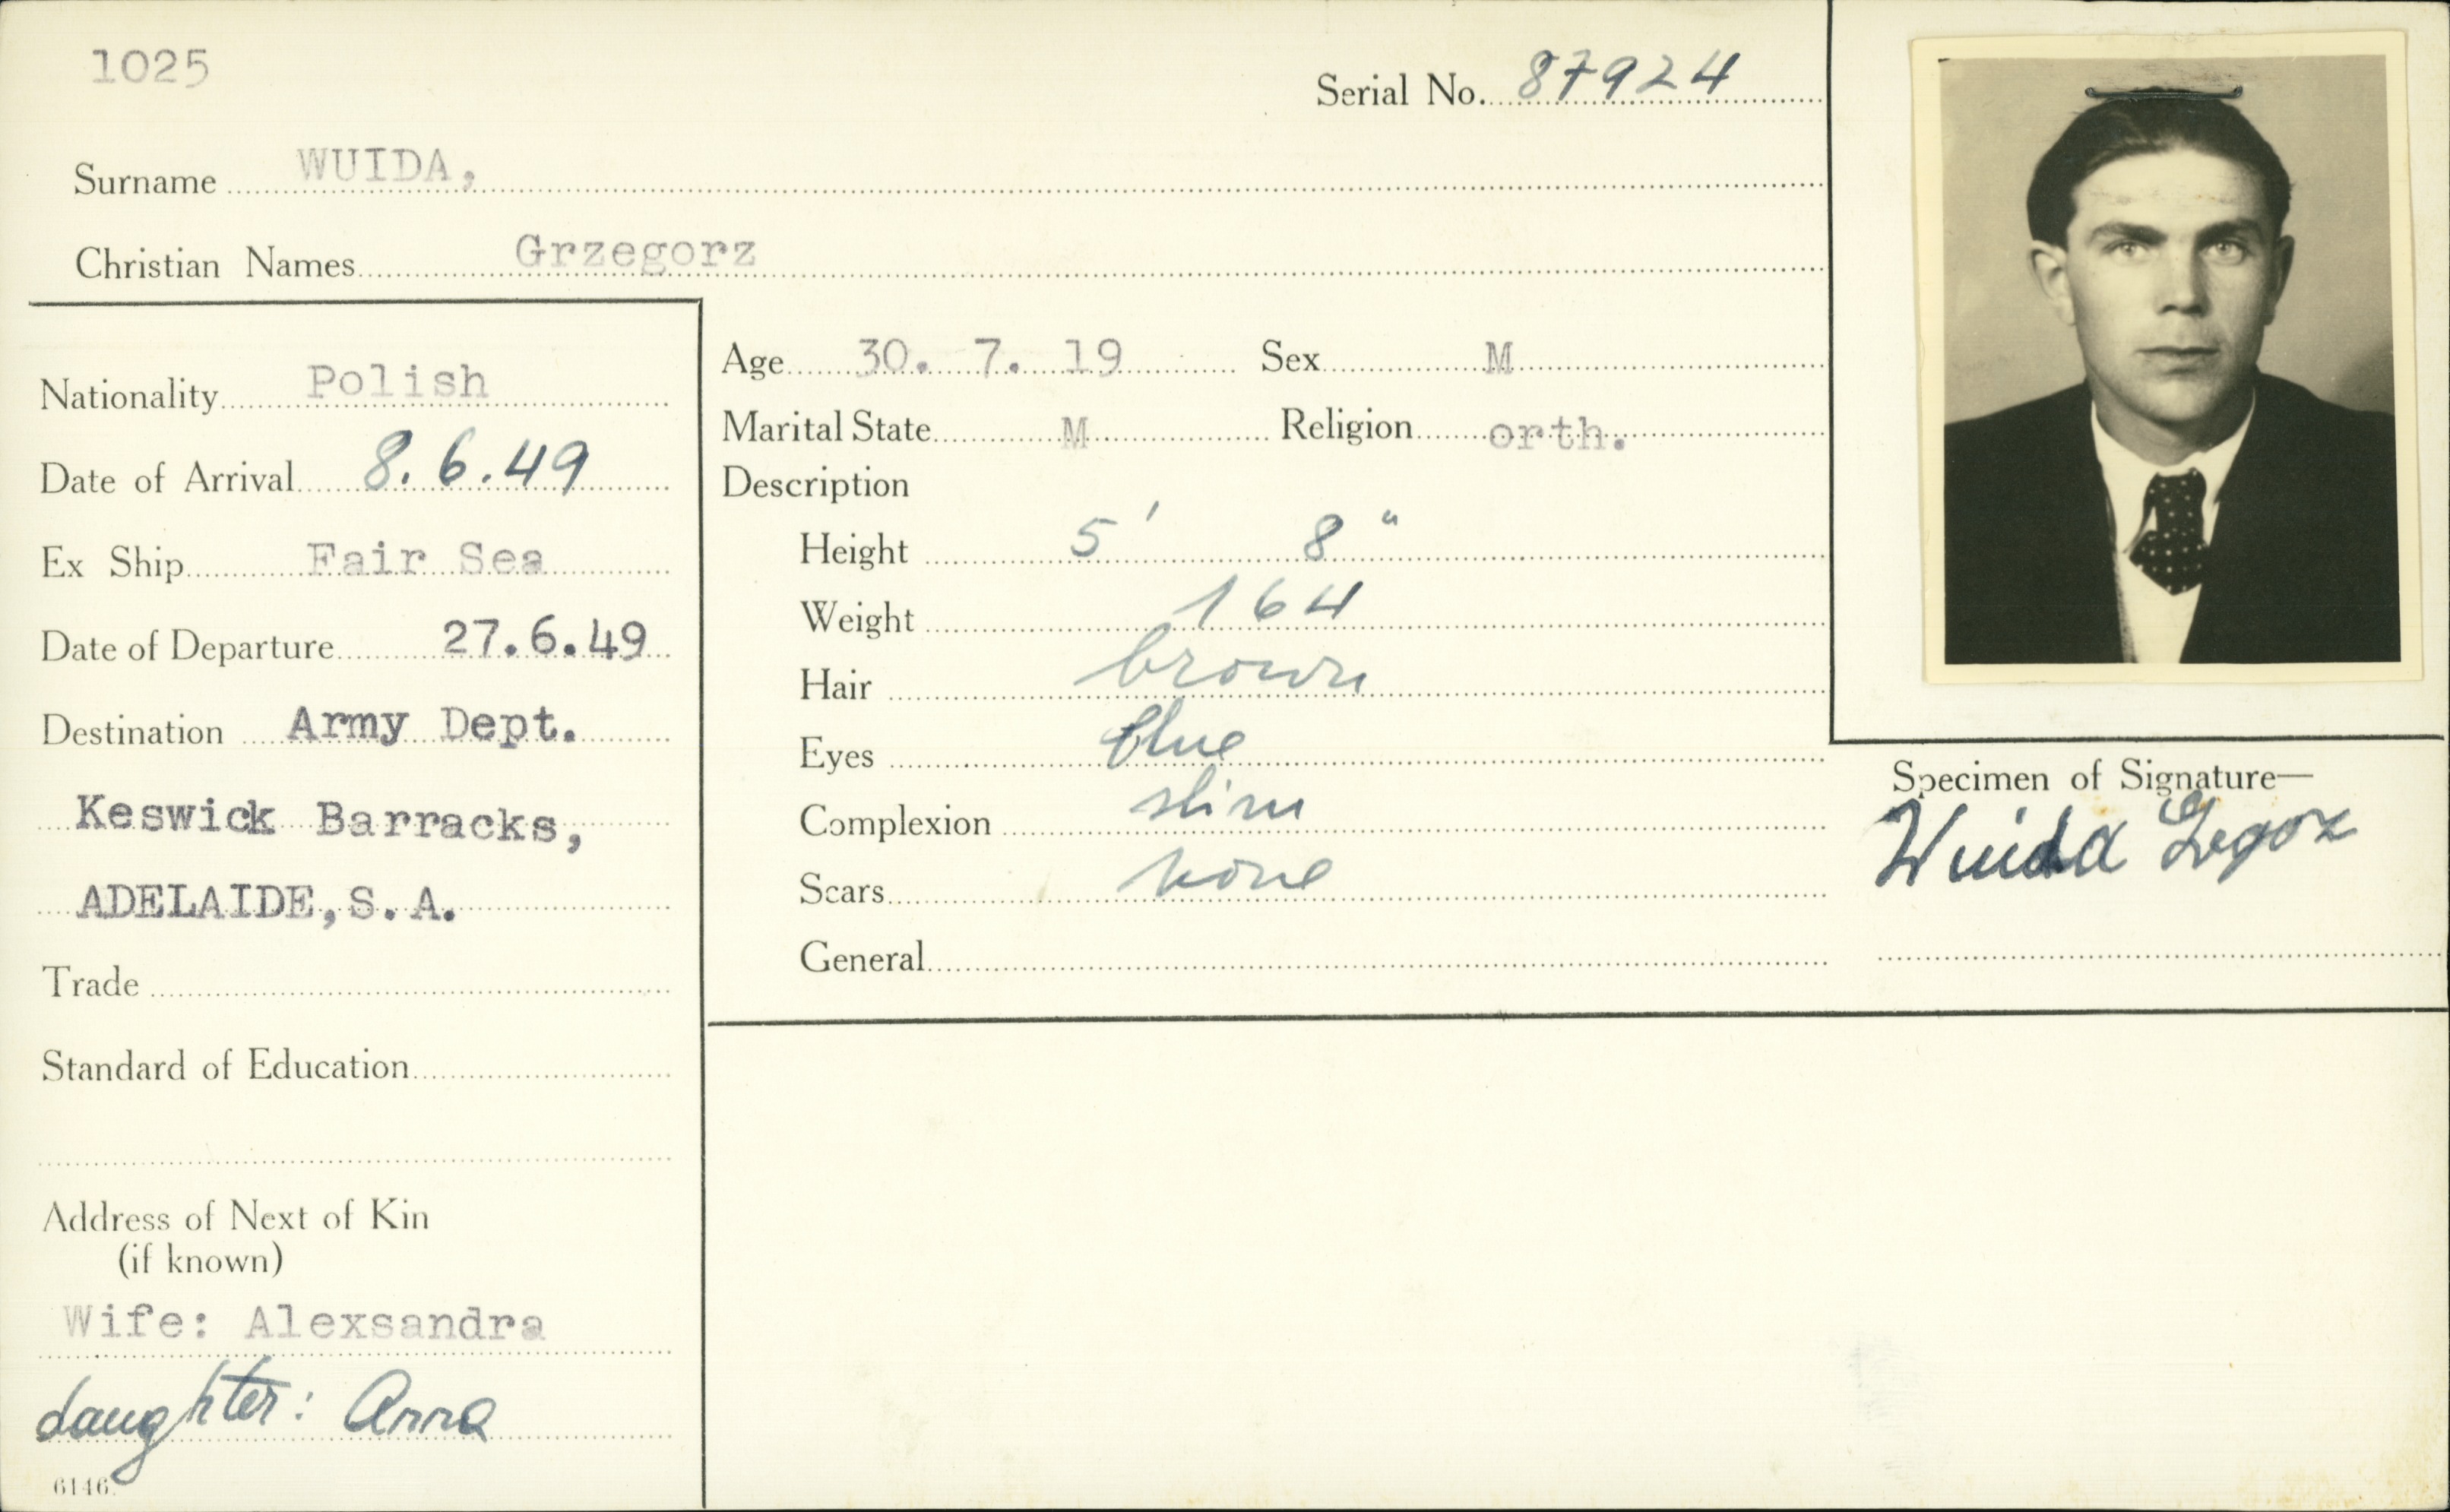 1025
Serial No. 87924
Surname WUIDA,
Christian Names Grzegorz
Nationality Polish
Date of Arrival 8.6.49
Ex Ship Fair Sea
Date of Departure 27.6.49
Destination Army Dept.
Keswick Barracks,
ADELAIDE,S.A.
Trade
Standard of Education
Address of Next of Kin
(if known)
Wife: Alexsandra
daughter: Anna
6146.
Age 30. 7. 19 Sex M
Marital State M Religion orth.
Description
Height 5' 8"
Weight 164
Hair brown
Eyes blue
Complexion slim
Scars none
General
Specimen of Signature—
Wuida